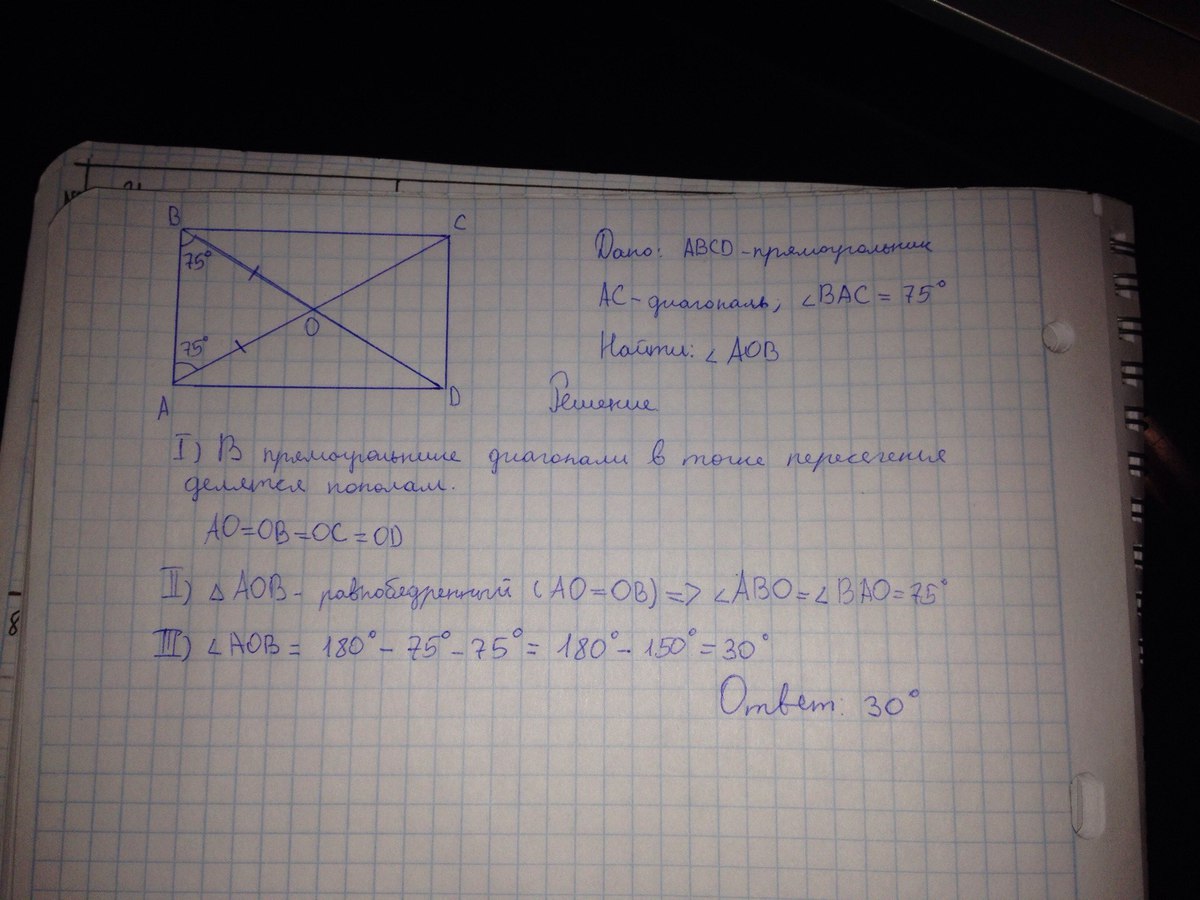 B
C
75°
O
75°
A
D
Дано: ABCD - прямоугольник
AC - диагональ, ∠BAC = 75°
Найти: ∠AOB
Решение
I) В прямоугольнике диагонали в точке пересечения
делятся пополам.
AO=OB=OC=OD
II) △AOB - равнобедренный (AO=OB) => ∠ABO=∠BAO=75°
III) ∠AOB = 180° - 75° - 75° = 180° - 150° = 30°
Ответ: 30°
8